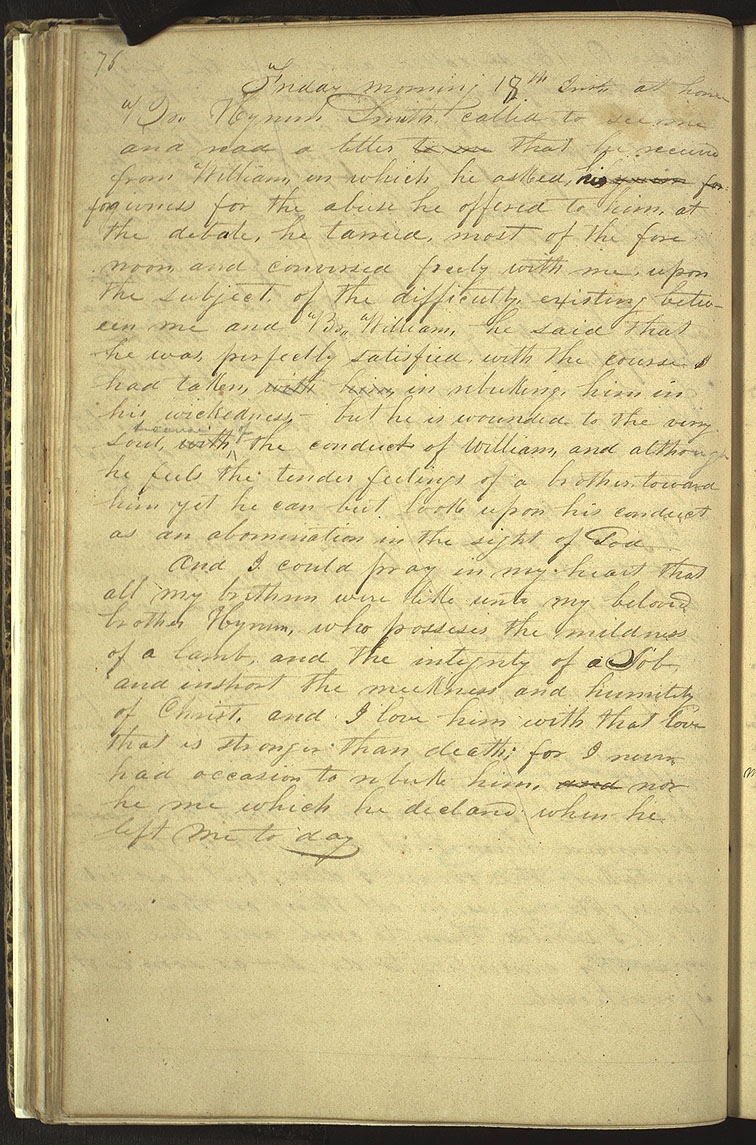 76
"Friday morning 18th Inst. at home
"Bro Hyrum Smith, called to see me
and read a letter to me that he received
from William, in which he asked, his for
forgivness for the abuse he offered to him, at
the debate, he tarried, most of the fore
noon and conversed freely with me, upon
the subject, of the difficulty, existing betw-
een me and "Bro" William, he said that
he was, perfectly satisfied, with the course I
had taken, with him, in rebuking, him in
his wickedness,— but he is wounded to the very
because of
soul, with the conduct of William, and although
he feels the tender feelings of a brother, toward
him yet he can but look upon his conduct
as an abomination in the sight of God
And I could pray in my heart that
all my brethren were like unto my beloved
brother Hyrum, who posseses the mildness
of a lamb, and the integrity of a Job,
and inshort the meekness and humility
of Christ, and I love him with that love
that is stronger than death; for I never
had occasion to rebuke him, and nor
he me which he declared when he
left me to day